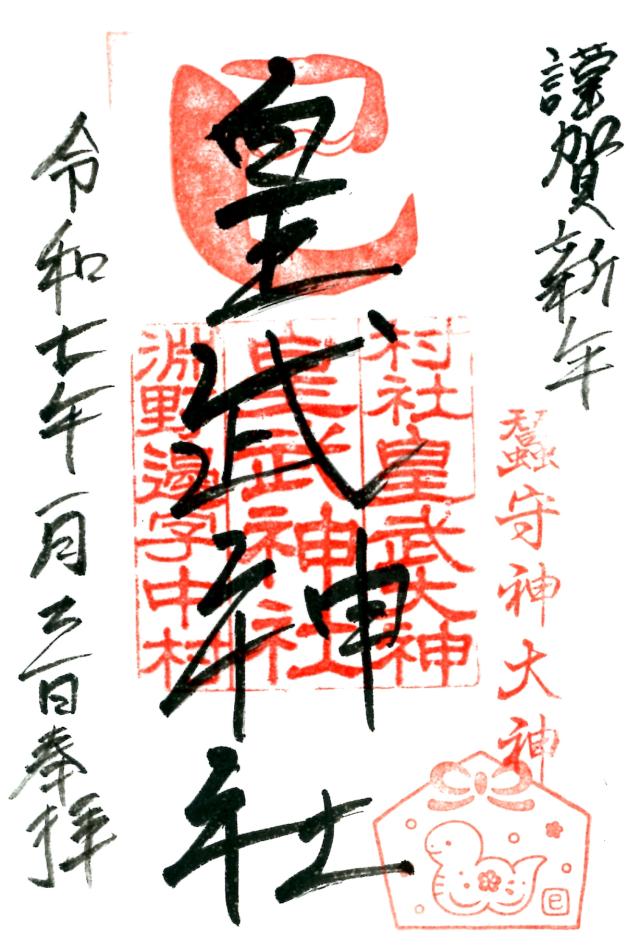 謹賀新年
蚕守神大神
村社皇武大神
皇武神社
淵野邉字中村
巳
皇武神社
令和七年一月三日奉拝
巳